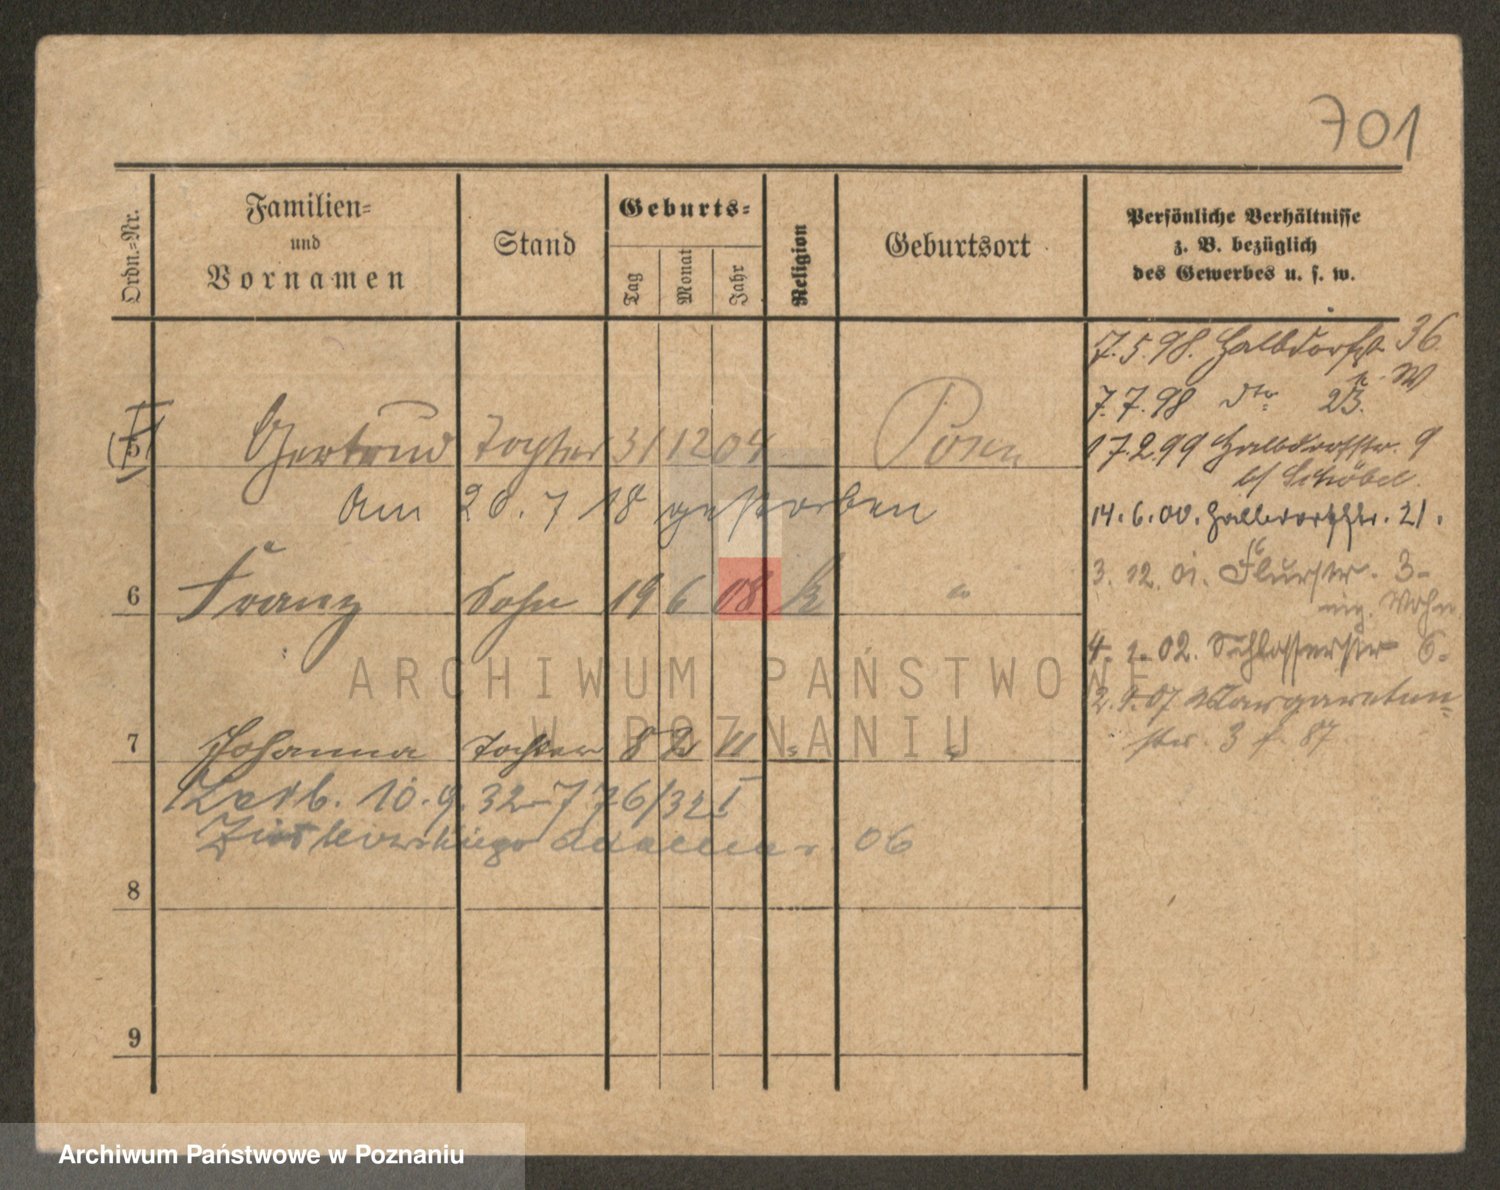 701
Ordn.-Nr.
Familien-
und
Vornamen
Stand
Geburts-
Tag
Monat
Jahr
Religion
Geburtsort
Persönliche Verhältnisse
z. B. bezüglich
des Gewerbes u. s. w.
5 Gertrud Tochter 31 12 04 Posen
Am 20. 7 18 gestorben
6 Franz Sohn 19 6 08 k "
7 Johanna Tochter 8 2 11 " "
10.9.32 - 776/32 I
06
8
9
7.5.98. Halbdorfst 36
7.7.98 dto 23.
17.2.99 Halbdorfstr. 9
b/ Schöbel.
14.6.00. Halbdorfstr. 21.
3.12.01. Flurstr. 3-
Wohn
4.1.02. Schlosserstr 6.
2.9.07 Margareten-
str. 3
ARCHIWUM PAŃSTWOWE
W POZNANIU
Archiwum Państwowe w Poznaniu